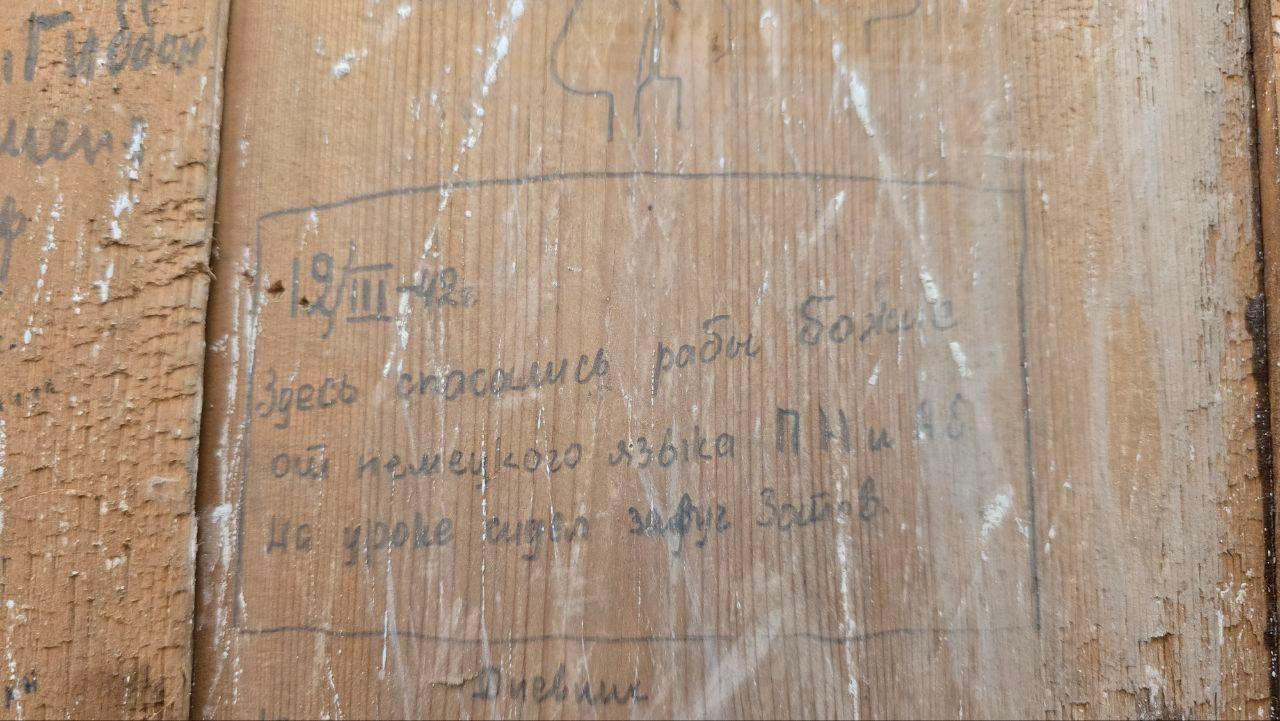 Гидон
12/III-42г.
Здесь спасались рабы божие
от немецкого языка ПН и АБ
на уроке сидел завуч Зотов.
Дневник